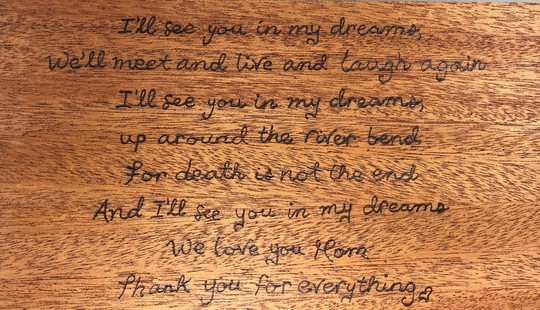 I'll see you in my dreams,
We'll meet and live and laugh again
I'll see you in my dreams,
up around the river bend
For death is not the end
And I'll see you in my dreams
We love you Mom
Thank you for everything